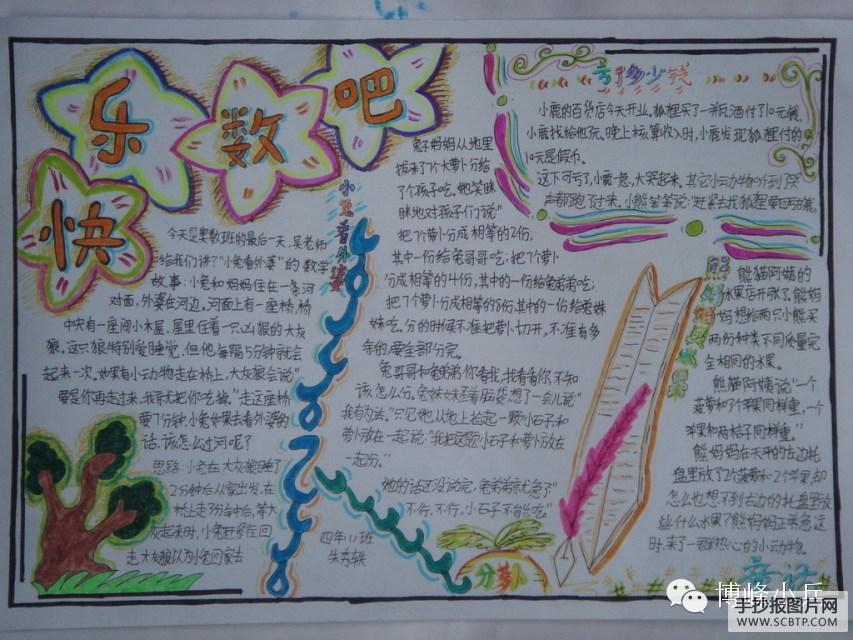 快
乐
数
吧
小兔看外婆
今天是奥数班的最后一天,吴老师
给我们讲了“小兔看外婆”的数学
故事:小兔和妈妈住在一条河
对面,外婆在河边。河面上有一座桥,桥
中央有一座间小木屋,屋里住着一只凶狠的大灰
狼。这只狼特别爱睡觉,但他每隔5分钟就会
起来一次。如果有小动物走在桥上,大灰狼会说“
要是你再走过来,我就把你吃掉。”走这座桥
要7分钟,小兔如果去看外婆的
话,该怎么过河呢?
思路:小兔在大灰狼睡了
2分钟后从家出发,在
桥上走了3分钟后,等大
灰起来时,小兔赶紧往回
走大灰狼以为小兔回家去
兔子妈妈从地里
拔来了7个大萝卜分给
了个孩子吃。她笑眯
眯地对孩子们说“
把7个萝卜分成相等的2份,
其中一份给兔哥哥吃;把7个萝卜
分成相等的4份,其中的一份给兔弟弟吃;
把7个萝卜分成相等的8份,其中的一份给兔妹
妹吃。分的时候不准把萝卜切开,不准有多
余的,要全部分完。
兔哥哥和兔弟弟你看我,我看看你,不知
该怎么分。兔妹妹歪着脑袋想了一会儿说“
我有办法。”只见她从地上拾起一颗小石子和
萝卜放在一起说:“我把这颗小石子和萝卜放在
一起分。”
她的话还没说完,兔弟弟就急了“
不行,不行,小石子不能吃”
四年11班
分萝卜
亏了多少钱
小鹿的百货店今天开业,狐狸买了一瓶酒付了10元钱,
小鹿找给他元。晚上核算收入时,小鹿发现狐狸付的
10元是假币。
这下可亏了,小鹿一急,大哭起来。其它小动物听到哭
声都跑了过来。小熊安答说“赶紧去找狐狸要回
熊妈妈买水果
熊猫阿姨的
水果店开张了,熊妈
妈想给两只小熊买
两份种类不同质量完
全相同的水果。
熊猫阿姨说“一个
菠萝和7个苹果同样重。一个
苹果和两桔子同样重。”
熊妈妈在天平的左边托
盘里放了2个菠萝和2个苹果,却
怎么也想不到右边的托盘里放
些什么水果了熊妈妈正着急这
时,来了一群热心的小动物。
童话
博峰小兵
手抄报图片网
WWW.SCBTP.COM